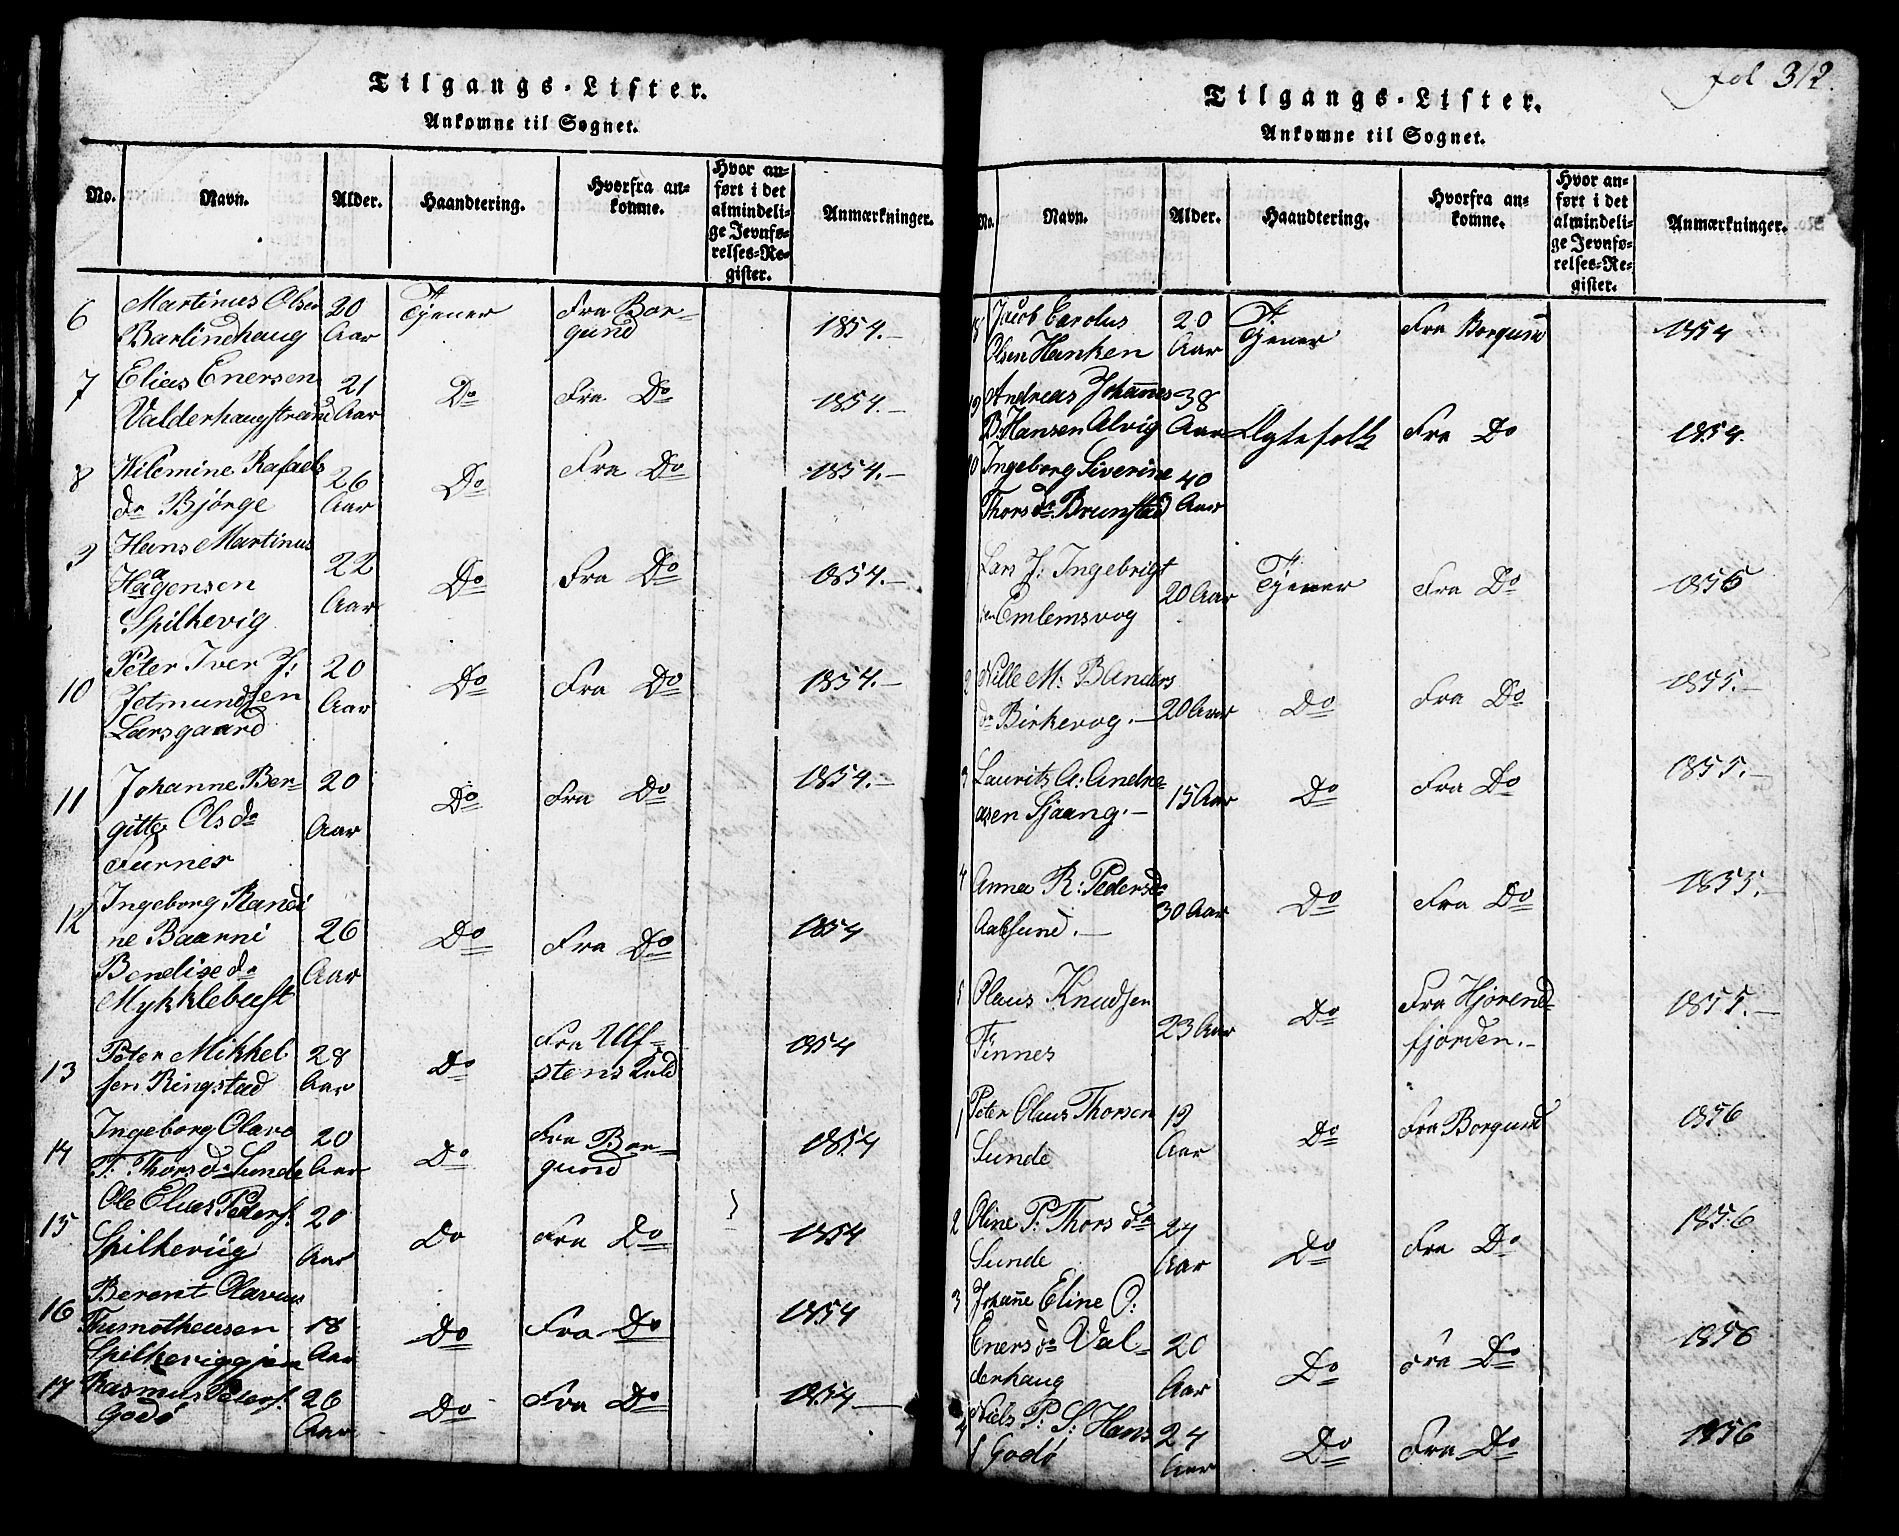 Tilgangs-Lister.
Ankomne til Sognet.
No. Navn. Alder. Haandtering. Hvorfra ankomne. Hvor anført i det almindelige Jevnførelses-Register. Anmærkninger.
6 Martinus Olsen 20 Tjener Fra Bor-
Barlindhaug Aar gund 1854.-
7 Elias Enersen 21 Do Fra Do 1854.-
Valderhaugstrand Aar
8 Wilemine Rafaels 26 Do Fra Do 1854.-
dr Bjørge Aar
9 Hans Martinus 22 Do Fra Do 1854.-
Haagensen Aar
Spilkevig
10 Peter Iver J: 20 Do Fra Do 1854.-
Jetmundsen Aar
Larsgaard
11 Johanne Ber- 20 Do Fra Do 1854.-
gitte Olsdr Aar
Furnes
12 Ingeborg Randi
ne Baarni 26 Do Fra Do 1854
Bendixedr Aar
Myklebust
13 Peter Mikkel 28 Do Fra Ulf- 1854
sen Ringstad Aar stens
14 Ingeborg Olave 20 Do Fra Bor- 1854
T. Thorsdr Sunde Aar gund
15 Ole Elias Peders. 20 Do Fra Do 1854
Spilkeviig Aar
16 Berent Olavus
Thimotheusen 18 Do Fra Do 1854
Spilkeviggjen Aar
17 Rasmus Peders. 26 Do Fra Do 1854
Godø Aar
fol 312.
Tilgangs-Lister.
Ankomne til Sognet.
No. Navn. Alder. Haandtering. Hvorfra ankomne. Hvor anført i det almindelige Jevnførelses-Register. Anmærkninger.
18 Jacob Carolus 20 Tjener Fra Borgund 1854
Olsen Hanken Aar
19 Andreas Johannes 38
B. Hansen Alvig Aar Ægtefolk Fra Do 1854.
20 Ingeborg Siverine 40
Thorsdr Brunstad Aar
Lars J: Ingebrigt Tjener Fra Do 1855
sen Emlemsvog 20 Aar
2 Nille M: B Anders Do Fra Do 1855.-
dr Birkevog.- 20 Aar
3 Laurits A: Andre- 15 Aar Do Fra Do 1855.-
asen Sjaang.-
4 Anna R: Pedersdr 30 Aar Do Fra Do 1855.-
Aalesund.-
5 Olaus Knudsen 23 Aar Do Fra Hjørend- 1855.-
Finnes fjorden.-
1 Peter Olaus Thorsen 19 Do Fra Borgund 1856
Sunde Aar
2 Oline P: Thorsdr 24 Do Fra Do 1856
Sunde Aar
3 Johanne Eline O:
Enersdr Val- 20 Do Fra Do 1856
derhaug Aar
4 Niels P: S: Hans 24 Do Fra Do 1856
Godø Aar